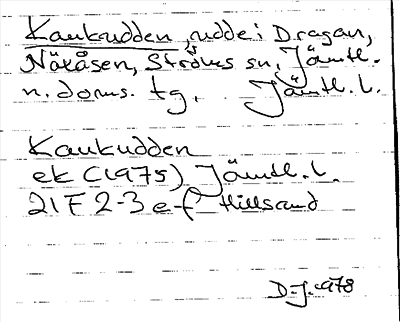 Kaukudden, udde i Dragan,
Näkåsen, Ströms sn, Jämtl.
n. doms. tg, Jämtl. l.
Kaukudden
ek (1975) Jämtl. l.
21F 2-3 e-f Hillsand
D-J. 1978